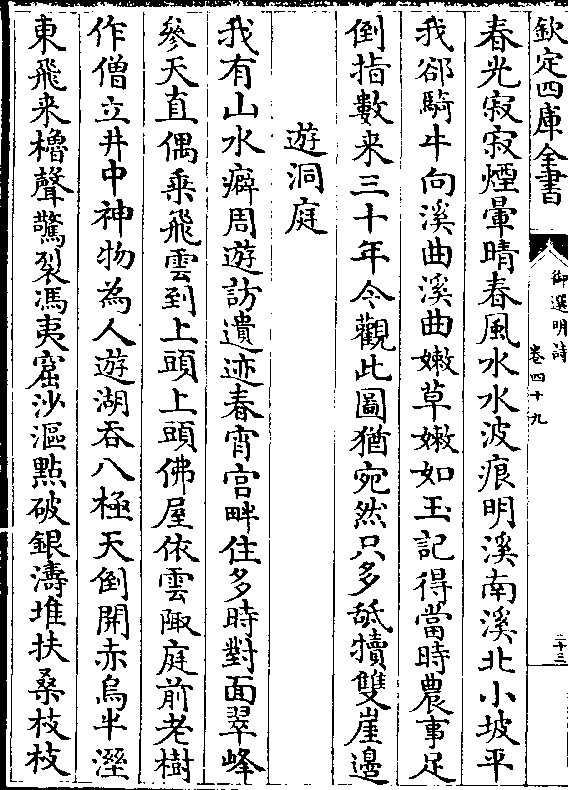 欽定四庫全書
御選明詩
卷四十九
二十三
春光寂寂煙暈晴春風水水波痕明溪南溪北小坡平
我郤騎牛向溪曲溪曲嫩草嫩如玉記得當時農事足
倒指數来三十年今觀此圖猶宛然只多舐犢雙崖邉
遊洞庭
我有山水癖周遊訪遺迹春宵宫畔住多時對面翠峰
參天直偶乘飛雲到上頭上頭佛屋依雲陬庭前老樹
作僧立井中神物為人遊湖吞八極天倒開赤烏半溼
東飛来櫓聲驚裂馮夷窟沙漚點破銀濤堆扶桑枝枝